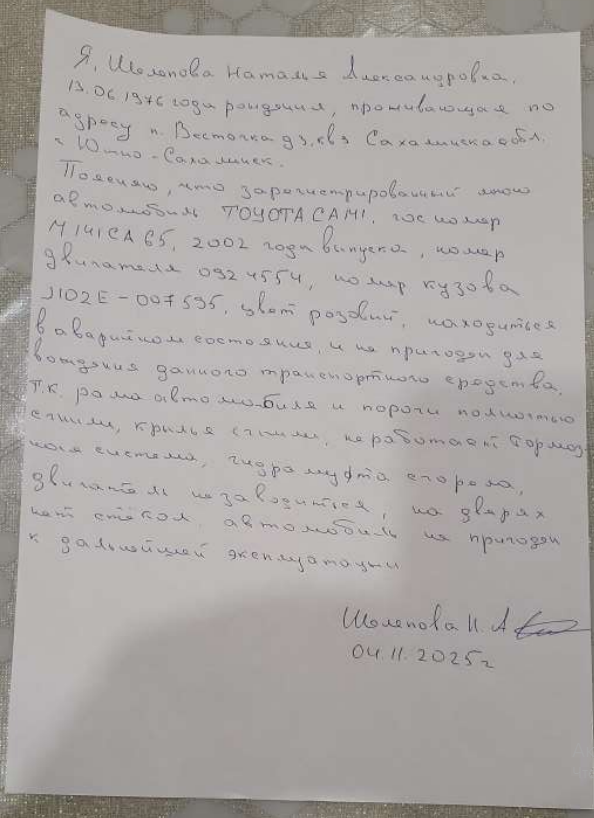 Я, Шолопова Наталья Александровна,
13.06.1976 года рождения, проживающая по
адресу п. Весточка д 3, кв 3 Сахалинская обл.
г Южно-Сахалинск.
Поясняю, что зарегистрированный мною
автомобиль TOYOTA CAMI, гос номер
М141СА65, 2002 года выпуска, номер
двигателя 0924554, номер кузова
J102E-007595, цвет розовый, находиться
в аварийном состояния, и не пригоден для
вождения данного транспортного средства,
т.к. рама автомобиля и пороги полностью
сгнили, крылья сгнили, не работает тормоз-
ная система, гидромуфта сгорела,
двигатель не заводиться, на дверях
нет стёкол. автомобиль не пригоден
к дальнейшей эксплуатации
Шолопова Н. А
04.11.2025г